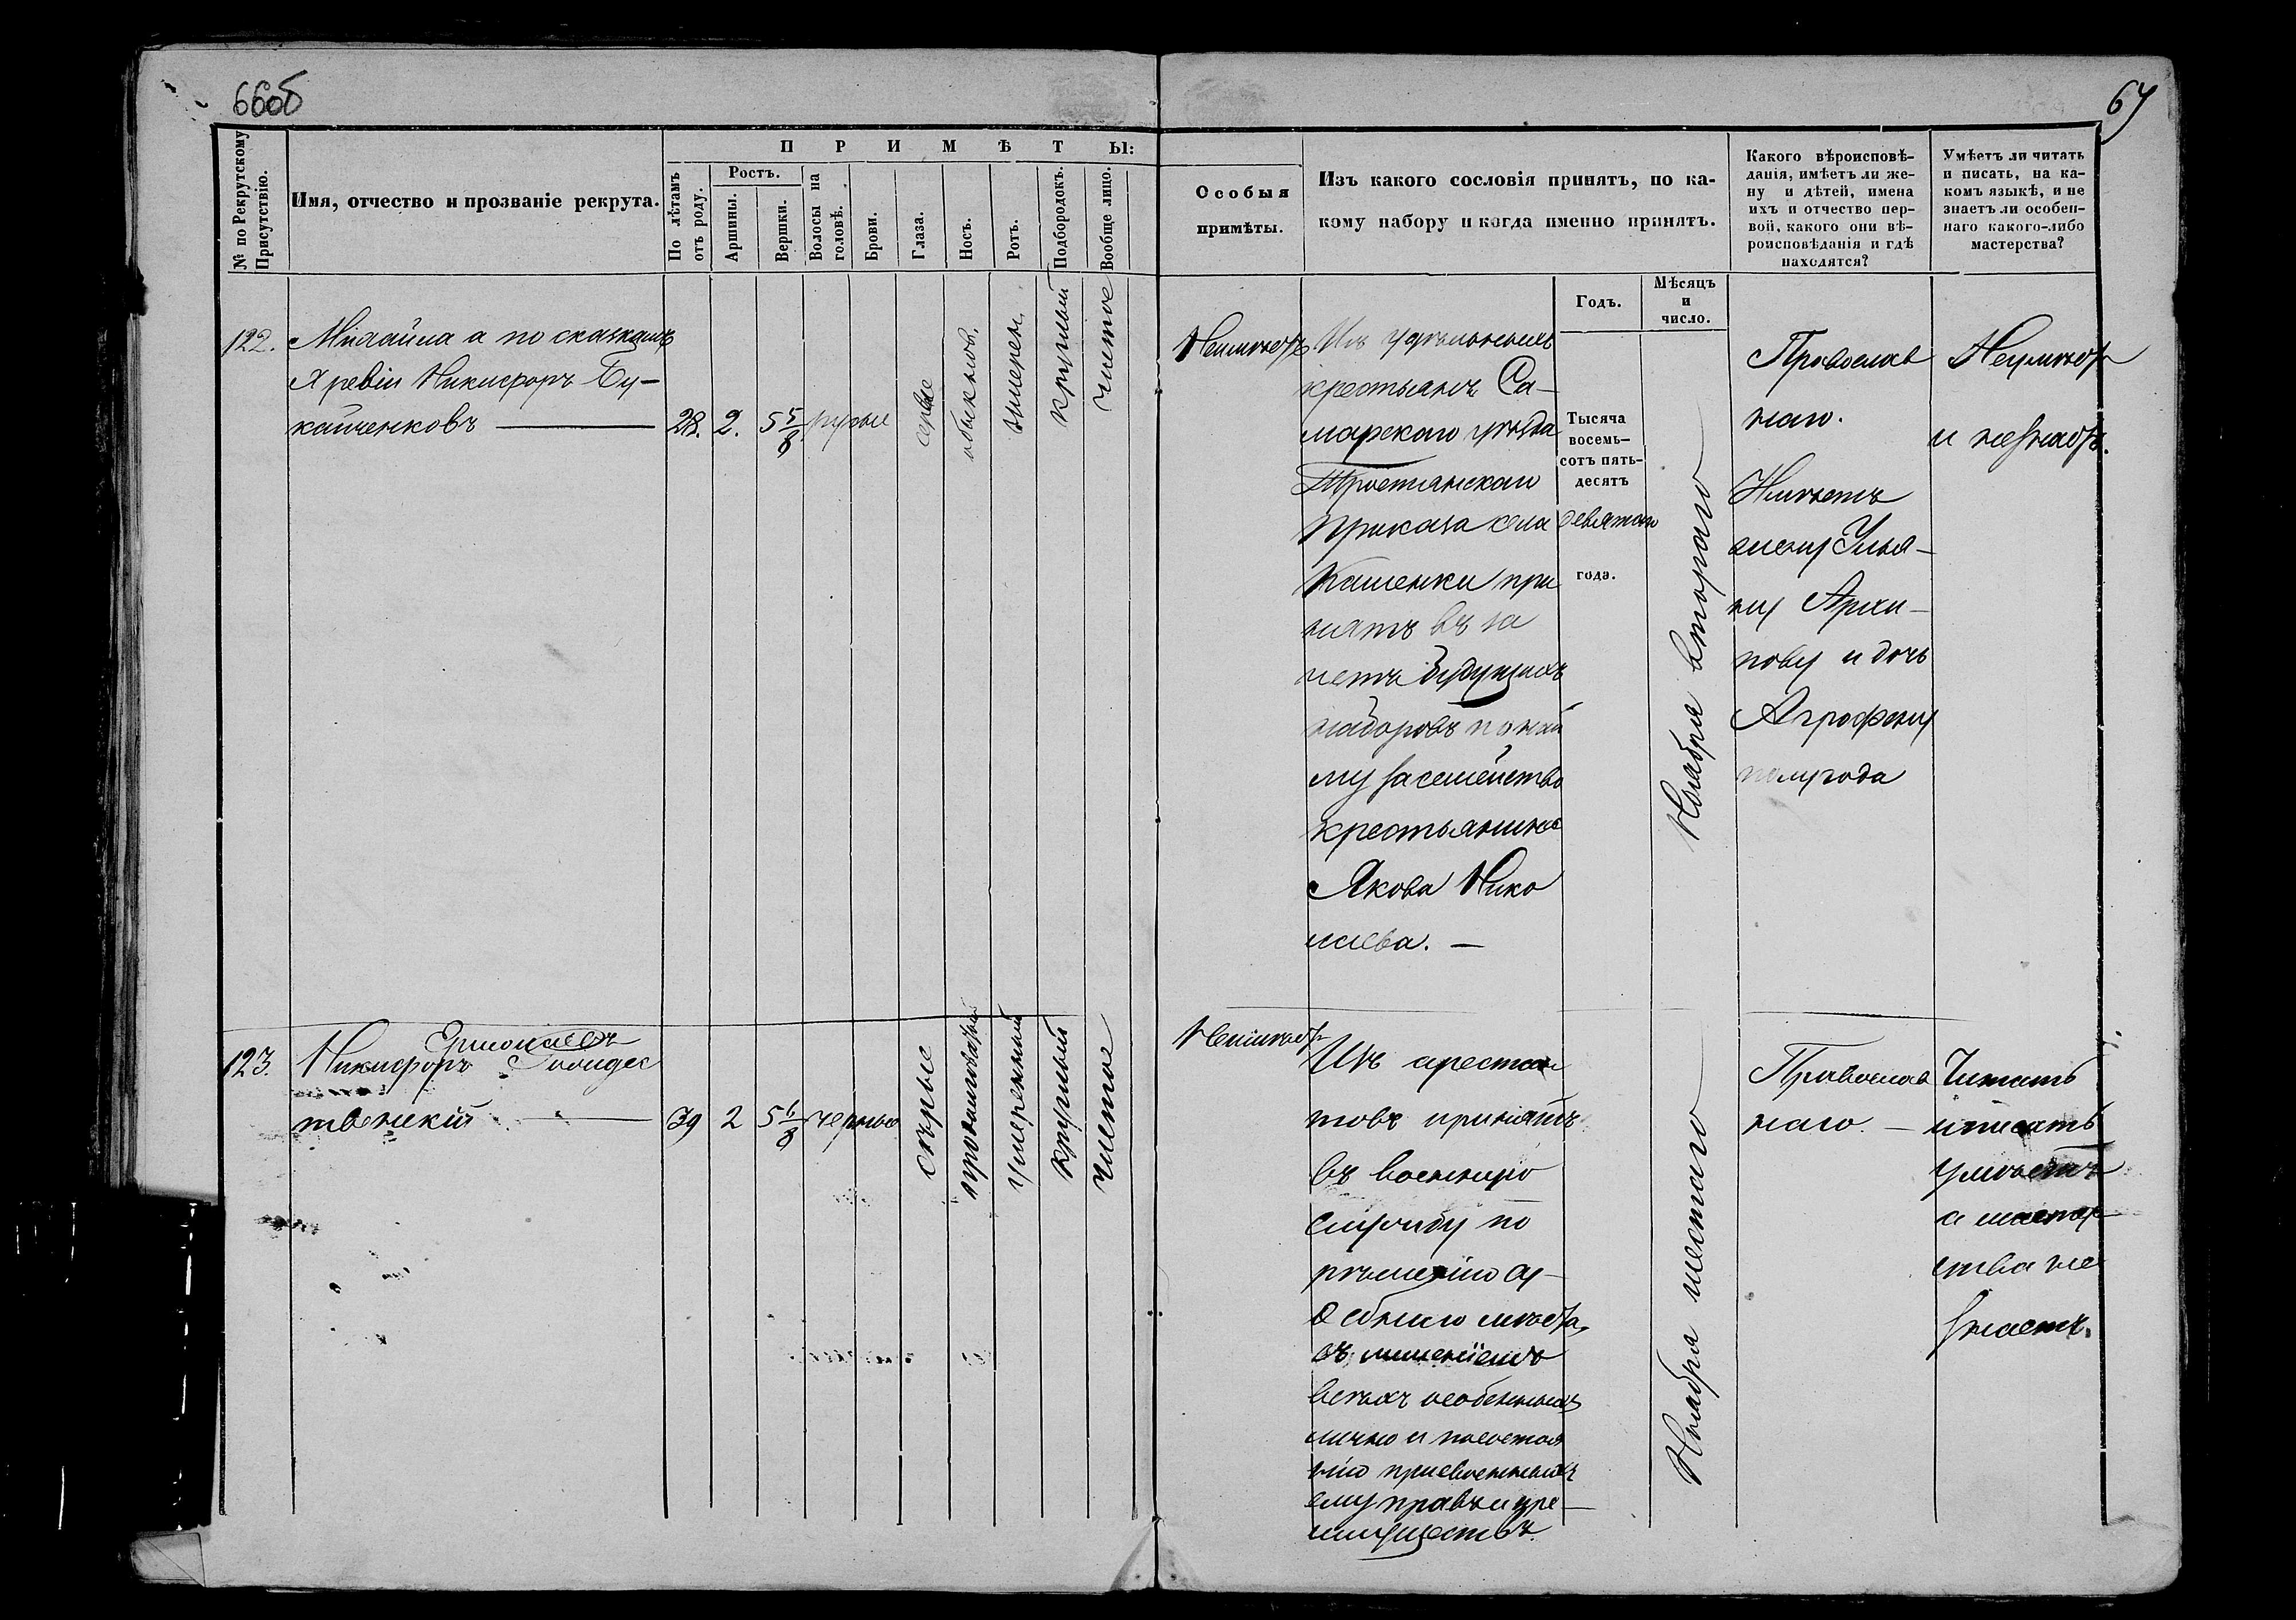 66об
67
№ по Рекрутскому Присутствію.
Имя, отчество и прозваніе рекрута.
ПРИМѢТЫ:
По лѣтамъ отъ роду.
Ростъ.
Аршины.
Вершки.
Волосы на головѣ.
Брови.
Глаза.
Носъ.
Ротъ.
Подбородокъ.
Вообще лицо.
Особыя
примѣты.
Изъ какого сословія принятъ, по ка-
кому набору и когда именно принятъ.
Годъ.
Мѣсяцъ
и
число.
Какого вѣроисповѣ-
данія, имѣетъ ли же-
ну и дѣтей, имена
ихъ и отчество пер-
вой, какого они вѣ-
роисповѣданія и гдѣ
находятся?
Умѣетъ ли читать
и писать, на ка-
комъ языкѣ, и не
знаетъ ли особен-
наго какого-либо
мастерства?
122.
Михайла а по сказкамъ
Я ревіи Никифоръ Бу-
каиченковъ
28.
2.
5 5/8
русые
серые
обыкнов.
умерен.
круглый
чистое
Неимѣетъ
Изъ удѣльныхъ
крестьянъ Са-
марскаго уѣзда
Тростянскаго
приказа села
Каменки при
нятъ въ за
четъ будущихъ
наборовъ по най
му за семейство
крестьянина
Якова Нико
лаева.
Тысяча
восемь-
сотъ пять-
десятъ
девятаго
года.
Ноября втораго
Православ
наго.
Имѣетъ
жену Улья-
ну Архи-
пову и дочь
Агрофену
полугода
Неумѣетъ
и незнаетъ.
123.
Ермолаевъ
Никифоръ
твенскій
39
2
5 6/8
черные
сѣрые
продолговатый
умеренный
круглый
чистое
Неимѣетъ
Изъ арестан
товъ принятъ
въ военную
службу по
рѣшенію су-
дебнаго мѣста,
съ лишеніемъ
всѣхъ особенныхъ
лично и по состоя
нію присвоенныхъ
ему правъ и пре-
имуществъ.
Ноября шестаго
Православ
наго.
Читать
и писать
умѣетъ
а мастер
ства не
знаетъ.